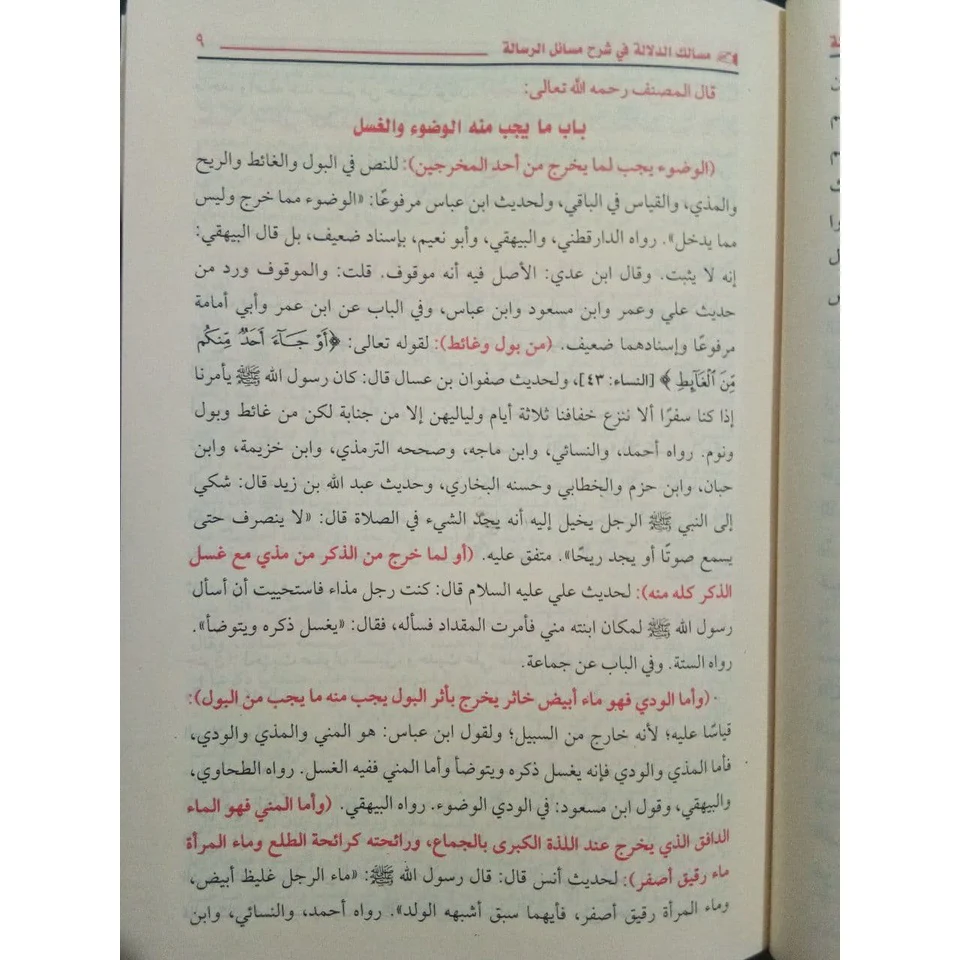 مسالك الدلالة في شرح مسائل الرسالة ٩
قال المصنف رحمه الله تعالى:
باب ما يجب منه الوضوء والغسل
(الوضوء يجب لما يخرج من أحد المخرجين): للنص في البول والغائط والريح
والمذي، والقياس في الباقي، ولحديث ابن عباس مرفوعًا: «الوضوء مما خرج وليس
مما يدخل». رواه الدارقطني، والبيهقي، وأبو نعيم، بإسناد ضعيف، بل قال البيهقي:
إنه لا يثبت. وقال ابن عدي: الأصل فيه أنه موقوف. قلت: والموقوف ورد من
حديث علي وعمر وابن مسعود وابن عباس، وفي الباب عن ابن عمر وأبي أمامة
مرفوعًا وإسنادهما ضعيف. (من بول وغائط): لقوله تعالى: ﴿أَوْ جَآءَ أَحَدٌ مِّنكُم
مِّنَ ٱلْغَآئِطِ﴾ [النساء: ٤٣]، ولحديث صفوان بن عسال قال: كان رسول الله ﷺ يأمرنا
إذا كنا سفرًا ألا ننزع خفافنا ثلاثة أيام ولياليهن إلا من جنابة لكن من غائط وبول
ونوم. رواه أحمد، والنسائي، وابن ماجه، وصححه الترمذي، وابن خزيمة، وابن
حبان، وابن حزم والخطابي وحسنه البخاري، وحديث عبد الله بن زيد قال: شكي
إلى النبي ﷺ الرجل يخيل إليه أنه يجد الشيء في الصلاة قال: «لا ينصرف حتى
يسمع صوتًا أو يجد ريحًا». متفق عليه. (أو لما خرج من الذكر من مذي مع غسل
الذكر كله منه): لحديث علي عليه السلام قال: كنت رجل مذاء فاستحييت أن أسأل
رسول الله ﷺ لمكان ابنته مني فأمرت المقداد فسأله، فقال: «يغسل ذكره ويتوضأ».
رواه الستة. وفي الباب عن جماعة.
(وأما الودي فهو ماء أبيض خاثر يخرج بأثر البول يجب منه ما يجب من البول):
قياسًا عليه؛ لأنه خارج من السبيل؛ ولقول ابن عباس: هو المني والمذي والودي،
فأما المذي والودي فإنه يغسل ذكره ويتوضأ وأما المني ففيه الغسل. رواه الطحاوي،
والبيهقي، وقول ابن مسعود: في الودي الوضوء. رواه البيهقي. (وأما المني فهو الماء
الدافق الذي يخرج عند اللذة الكبرى بالجماع، ورائحته كرائحة الطلع وماء المرأة
ماء رقيق أصفر): لحديث أنس قال: قال رسول الله ﷺ: «ماء الرجل غليظ أبيض،
وماء المرأة رقيق أصفر، فأيهما سبق أشبهه الولد». رواه أحمد، والنسائي، وابن